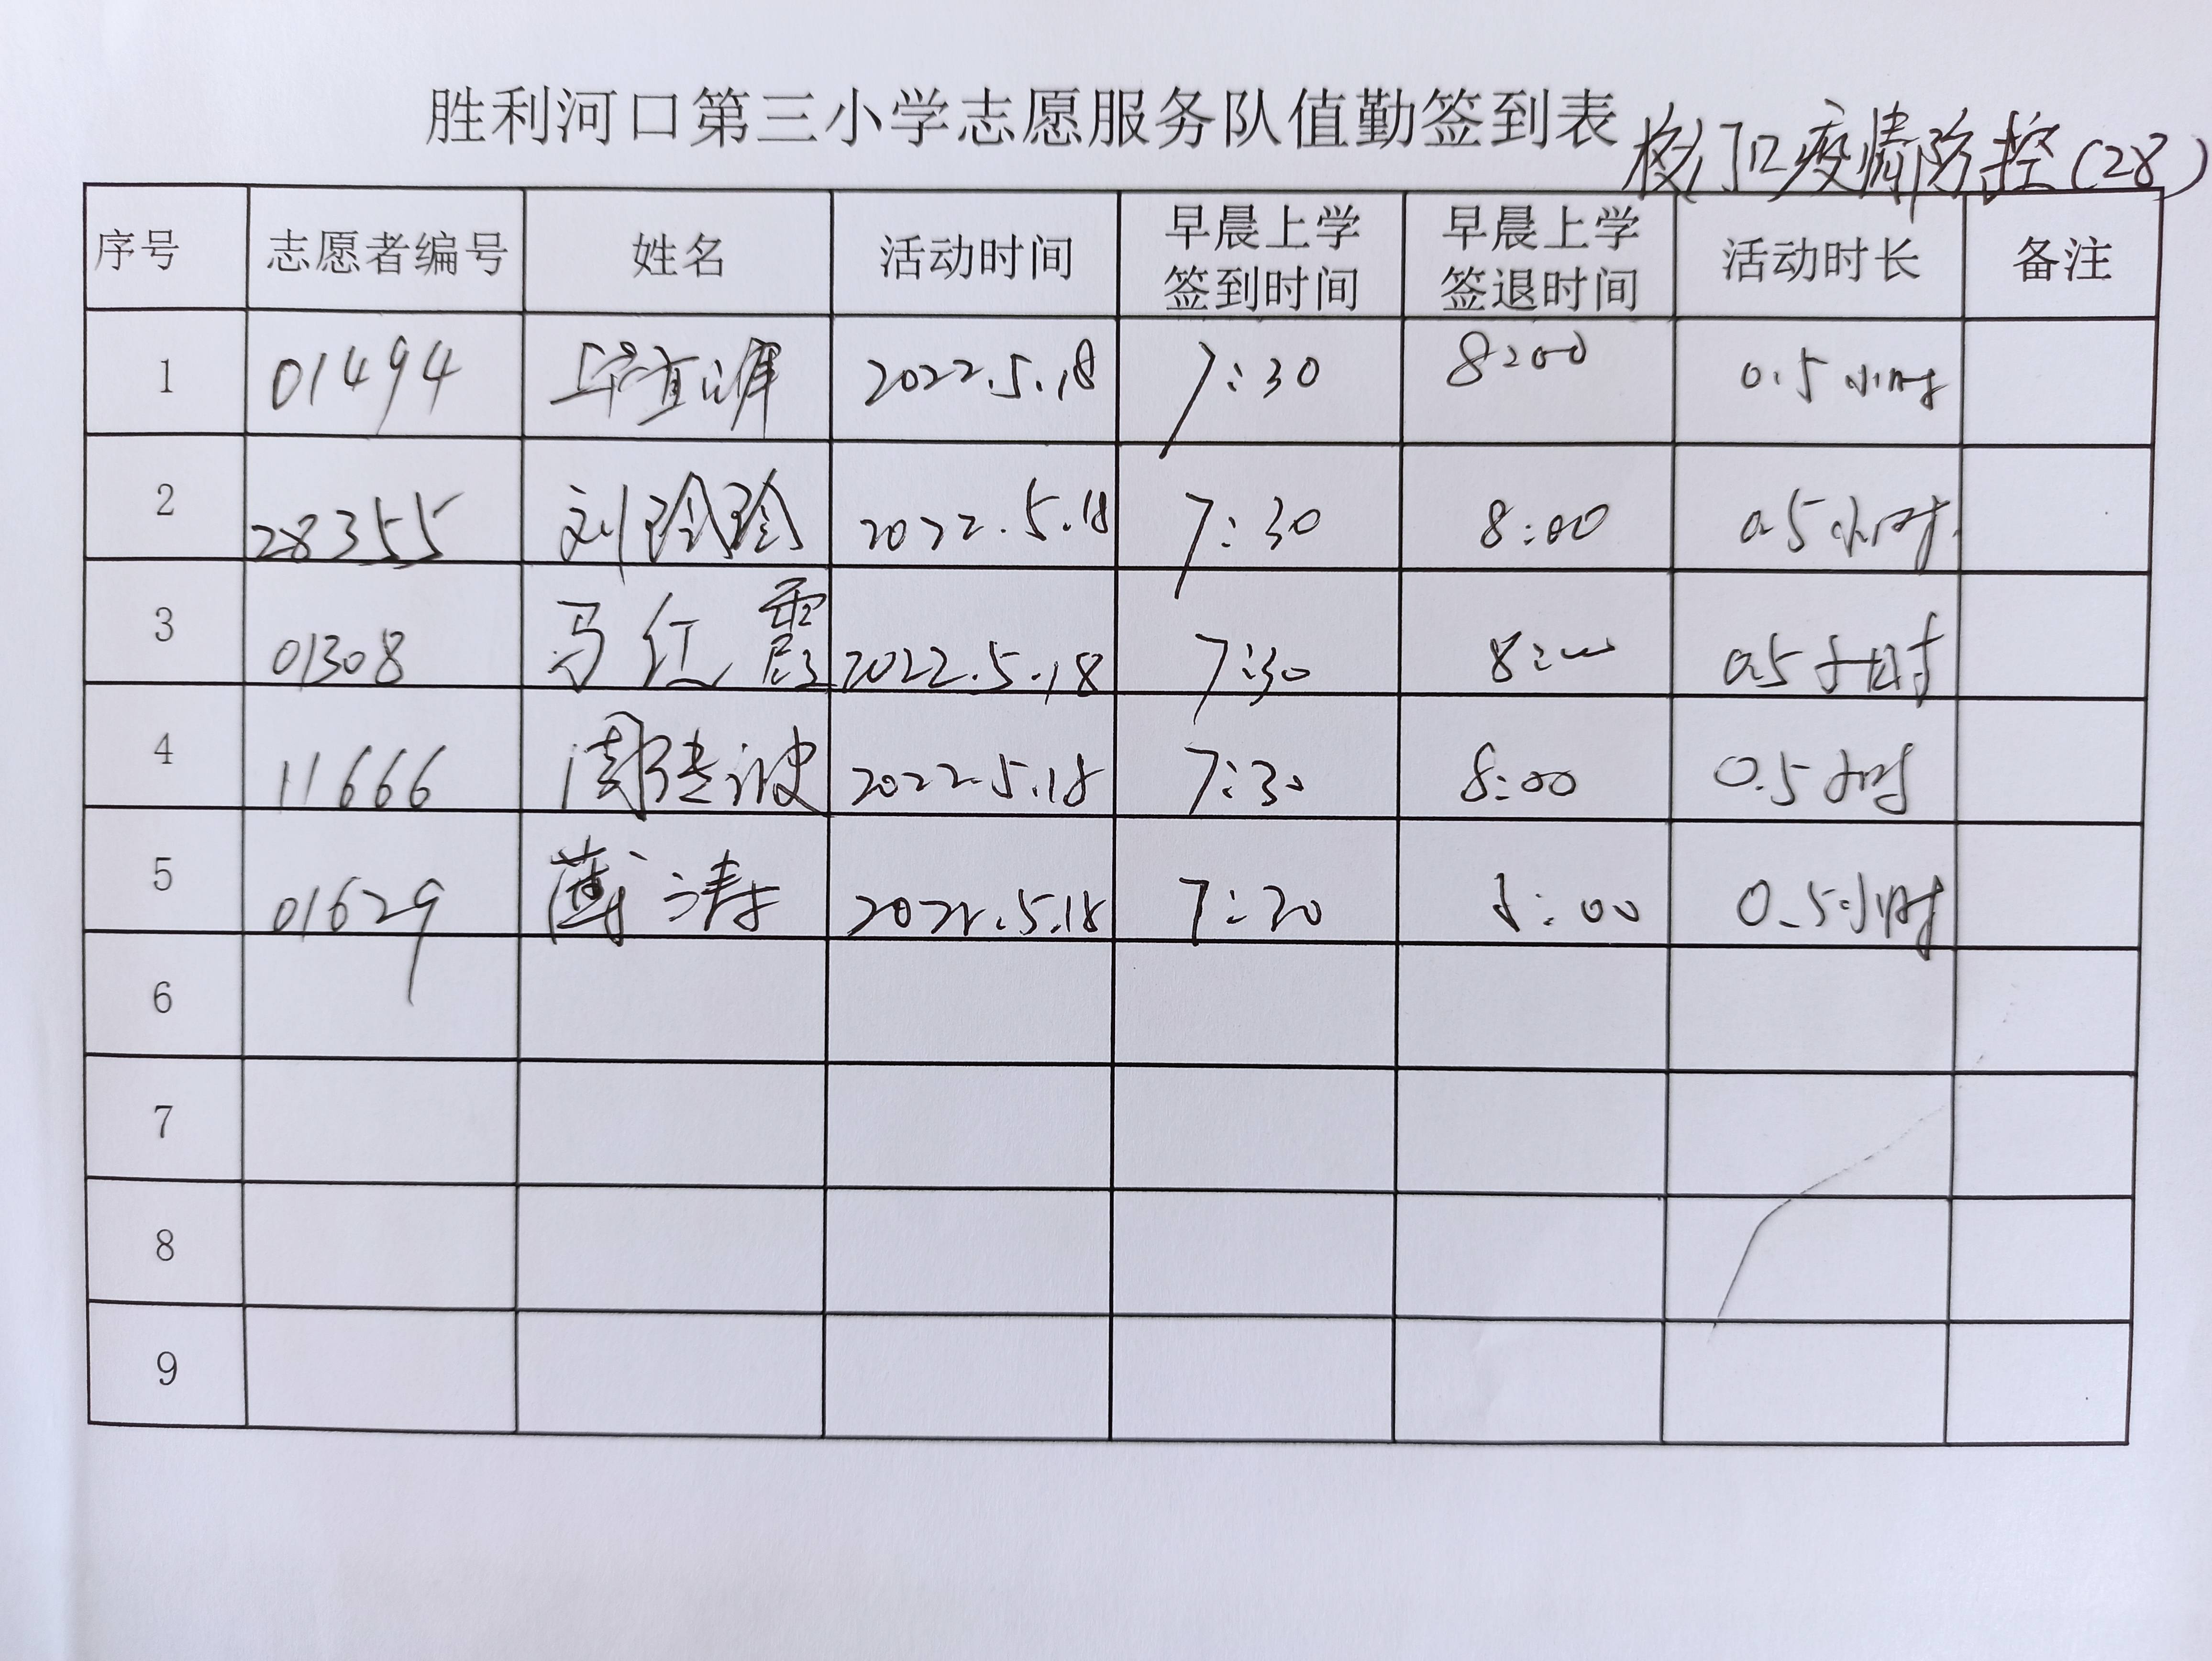 胜利河口第三小学志愿服务队值勤签到表 校门口疫情防控(28)
序号 志愿者编号 姓名 活动时间 早晨上学签到时间 早晨上学签退时间 活动时长 备注
1 01494 2022.5.18 7:30 8:00 0.5小时
2 28355 刘玲玲 2022.5.18 7:30 8:00 0.5小时
3 01308 马红霞 2022.5.18 7:30 8:00 0.5小时
4 11666 2022.5.18 7:30 8:00 0.5小时
5 01629 薄涛 2022.5.18 7:30 8:00 0.5小时
6
7
8
9